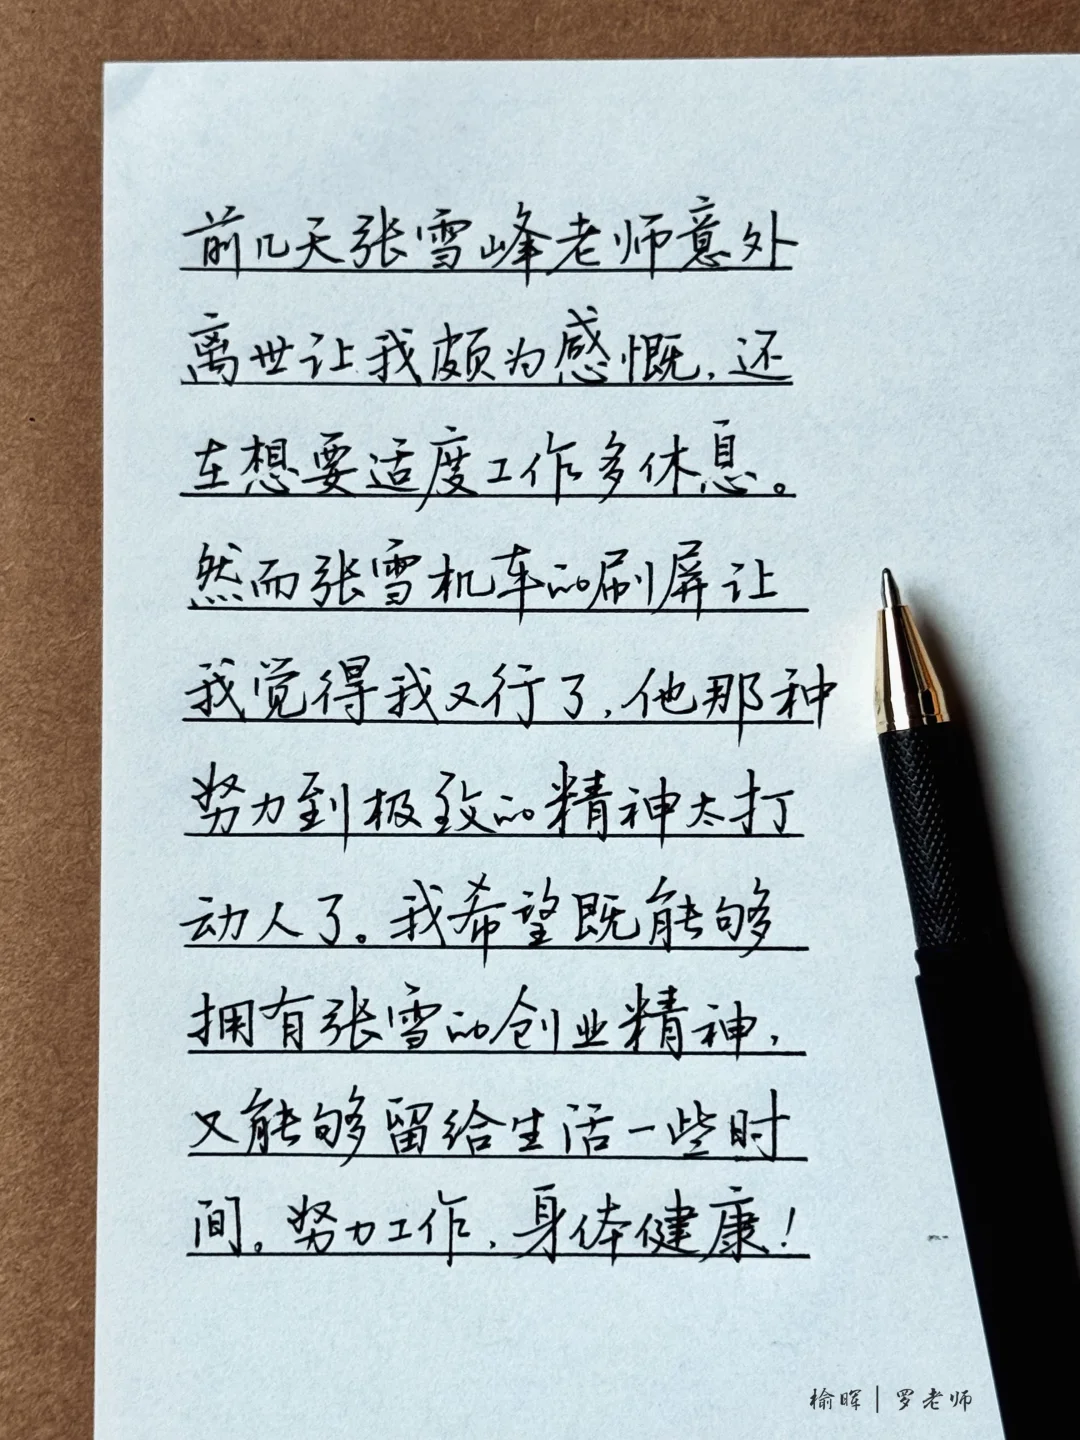 前几天张雪峰老师意外
离世让我颇为感慨，还
在想要适度工作多休息。
然而张雪机车的刷屏让
我觉得我又行了，他那种
努力到极致的精神太打
动人了。我希望既能够
拥有张雪的创业精神，
又能够留给生活一些时
间。努力工作，身体健康！
榆晖｜罗老师